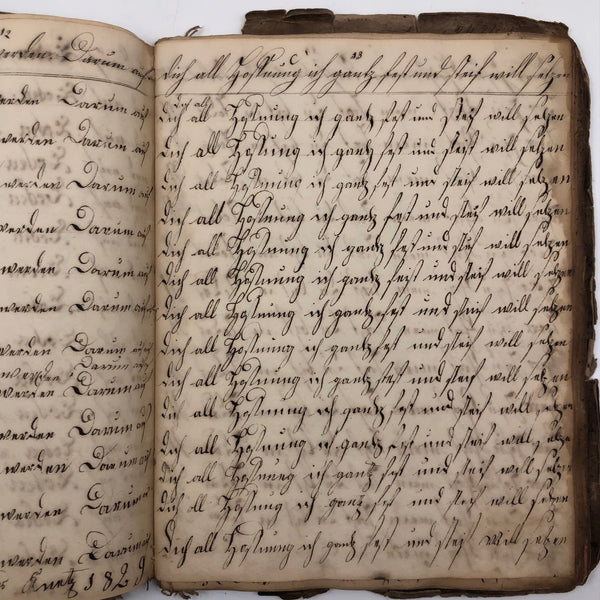 12
werden. Darum auf
werden Darum auf
werden Darum auf
werden Darum auf
werden Darum auf
werden Darum auf
werden Darum auf
werden Darum auf
werden Darum auf
werden Darum auf
werden Darum auf
werden Darum auf
werden Darum auf
werden Darum auf
1829
13
dich all Hoffnung ich gantz fest und steif will setzen
Dich all
dich all Hoffnung ich gantz fest und steif will setzen
dich all Hoffnung ich gantz fest und steif will setzen
dich all Hoffnung ich gantz fest und steif will setzen
dich all Hoffnung ich gantz fest und steif will setzen
dich all Hoffnung ich gantz fest und steif will setzen
dich all Hoffnung ich gantz fest und steif will setzen
dich all Hoffnung ich gantz fest und steif will setzen
dich all Hoffnung ich gantz fest und steif will setzen
dich all Hoffnung ich gantz fest und steif will setzen
dich all Hoffnung ich gantz fest und steif will setzen
dich all Hoffnung ich gantz fest und steif will setzen
dich all Hoffnung ich gantz fest und steif will setzen
dich all Hoffnung ich gantz fest und steif will setzen
dich all Hoffnung ich gantz fest und steif will setzen